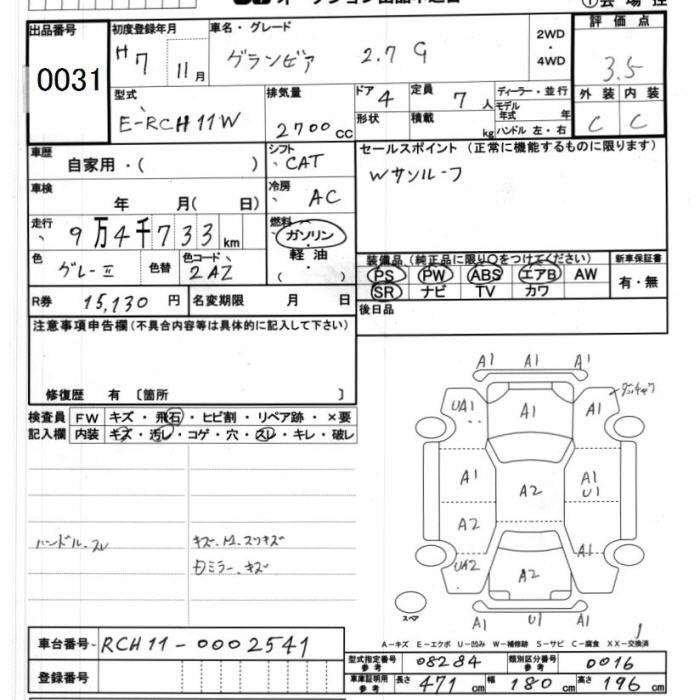 出品番号 0031
初度登録年月 H7 11月
車名・グレード グランビア 2.7 G
2WD・4WD
評価点 3.5
外装 C 内装 C
型式 E-RCH11W
排気量 2700CC
ドア 4 形状
定員 7人 積載 kg
ディーラー・並行
モデル年式 年
ハンドル 左・右
車歴 自家用・( )
シフト CAT
セールスポイント (正常に機能するものに限ります)
Wサンルーフ
車検 年 月( 日)
冷房 AC
走行 9万4千733km
燃料 ガソリン・軽油・( )
色 グレーII 色替 色コード 2AZ
装備品 (純正品に限り○をつけてください)
PS PW ABS エアB AW
SR ナビ TV カワ
新車保証書 有・無
R券 15,130円 名変期限 月 日
後日品
注意事項申告欄(不具合内容等は具体的に記入して下さい)
修復歴 有 〔箇所 〕
検査員記入欄
FW キズ・飛石・ヒビ割・リペア跡・×要
内装 キズ・汚レ・コゲ・穴・スレ・キレ・破レ
A1 A1 A1
UA1 A1 A1
A1 A1
U1
A2 A2
UA2 A2 A1
A1 U1 A1
ハンドル、スレ
スペア
A-キズ E-エクボ U-凹み W-補修跡 S-サビ C-腐食 XX-交換済
車台番号 RCH11-0002541
登録番号
型式指定番号参考 08284 類別区分番号参考 0016
車庫証明用参考 長さ 471cm 幅 180cm 高さ 196cm